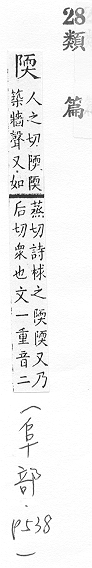 28 類篇
陾
人之切陾陾
築牆聲又如
蒸切詩捄之陾陾又乃
后切衆也文一重音二
(阜部·p538)